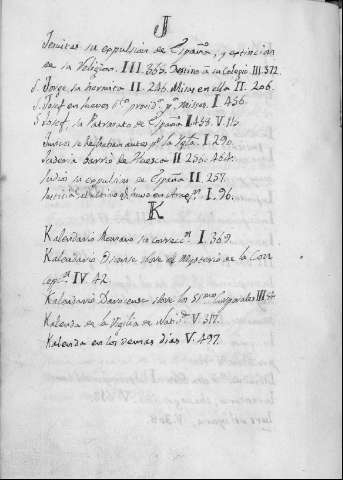 J
Jesuitas su expulsion de España, y extincion
de su Religion. III. 365. Destino a su Colegio. III. 372.
S. Jorge su hermita II. 246. Misas en ella II. 206.
S. Josef en Jueves Sto. I. 436.
S. Josef, su Patronato de España I. 458. V.
Juntos
Juderia barrio de Huesca II 236. 464.
Judios su expulsion de España II 257.
Justicia I. 96.
K
Kalendario Romano su correcon. I. 369.
Kalendario Oscense sobre el Mysterio de la Con
cepcon. IV. 42.
Kalendario Daroicense sobre los SSmos. Corporales III
Kalenda de la Vigilia de Natid. V. 317.
Kalenda en los demas dias V. 497.